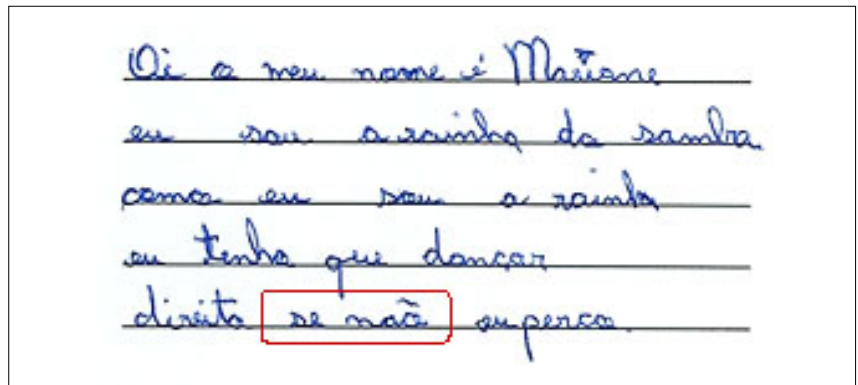 Oi o meu nome é Mariane
eu sou a rainha do samba
como eu sou a rainha
eu tenho que dançar
direito se não eu perco.